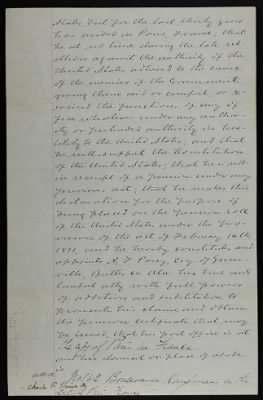 States but for the last thirty years
has resided in Paris, France; that
he at no time during the late re
bellion against the authority of the
United States adhered to the cause
of the enemies of the Government,
giving them aid or comfort, or ex
ercised the functions of any of
fice whatever under any autho
rity or pretended authority in hos-
tility to the United States; and that
he will support the Constitution
of the United States; that he is not
in receipt of a pension under any
previous act; that he makes this
declaration for the purpose of
being placed on the pension roll
of the United States under the pro-
visions of the act of February 14th
1871, and he hereby constitutes and
appoints Esq of Green
ville, Butler co Ala his true and
lawful atty with full powers
of revocation and substitution to
prosecute his claim and obtain
the pension certificate that may
be issued; that his post office is at
the City of Paris in France
and his domicil or place of abode
is
attest